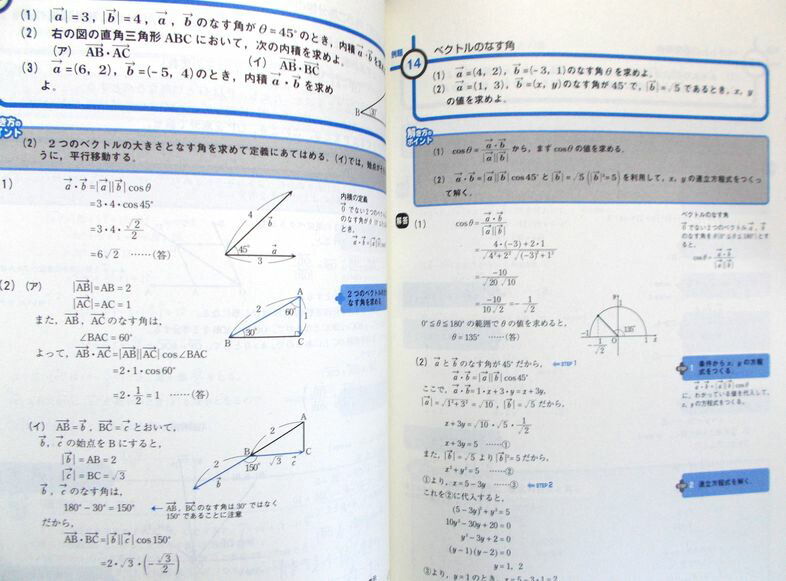 (1) |a⃗|=3, |b⃗|=4, a⃗, b⃗のなす角がθ=45°のとき, 内積a⃗・b⃗を求
(2) 右の図の直角三角形ABCにおいて, 次の内積を求めよ.
(ア) AB⃗・AC⃗ (イ) AB⃗・BC⃗
(3) a⃗=(6, 2), b⃗=(−5, 4)のとき, 内積a⃗・b⃗を求め
よ.
B
き方の
イント
(2) 2つのベクトルの大きさとなす角を求めて定義にあてはめる. (イ)では, 始点が
うに, 平行移動する.
1)
a⃗・b⃗=|a⃗||b⃗|cosθ
=3・4・cos45°
=3・4・√2/2
=6√2 ……(答)
4
b⃗
45°
3
a⃗
内積の定義
0⃗でない2つのベク
のなす角が
とき,
a⃗・b⃗=|a⃗||b⃗|
(2) (ア) |AB⃗|=AB=2
|AC⃗|=AC=1
また, AB⃗, AC⃗のなす角は,
∠BAC=60°
よって, AB⃗・AC⃗=|AB⃗||AC⃗|cos∠BAC
=2・1・cos60°
=2・1/2=1 ……(答)
A
2
60°
1
B
30°
C
2つのベクトルの
なす角を求める
(イ) AB⃗=b⃗, BC⃗=c⃗とおいて,
b⃗, c⃗の始点をBにすると,
|b⃗|=AB=2
|c⃗|=BC=√3
b⃗, c⃗のなす角は,
180°−30°=150°
← AB⃗, BC⃗のなす角は30°ではなく
150°であることに注意
だから,
AB⃗・BC⃗=|b⃗||c⃗|cos150°
=2・√3・(−√3/2)
A
2
B
C
150°
√3
c⃗
2
b⃗
例題
14
ベクトルのなす角
(1) a⃗=(4, 2), b⃗=(−3, 1)のなす角θを求めよ.
(2) a⃗=(1, 3), b⃗=(x, y)のなす角が45°で, |b⃗|=√5であるとき, x, y
の値を求めよ.
解き方の
ポイント
(1) cosθ=a⃗・b⃗/|a⃗||b⃗| から, まずcosθの値を求める.
(2) a⃗・b⃗=|a⃗||b⃗|cos45°と|b⃗|=√5(|b⃗|²=5)を利用して, x, yの連立方程式をつくっ
て解く.
解答
(1) cosθ=a⃗・b⃗/|a⃗||b⃗|
=4・(−3)+2・1/√4²+2²√(−3)²+1²
=−10/√20√10
=−10/10√2=−1/√2
0°≦θ≦180°の範囲でθの値を求めると,
θ=135° ……(答)
ベクトルのなす角
0⃗でない2つのベクトルa⃗, b⃗
のなす角をθ(0°≦θ≦180°)とす
ると,
cosθ=a⃗・b⃗/|a⃗||b⃗|
y
1
135°
−1
−1/√2
O
1
x
(2) a⃗とb⃗のなす角が45°だから, ←STEP1
a⃗・b⃗=|a⃗||b⃗|cos45°
ここで, a⃗・b⃗=1・x+3・y=x+3y.
|a⃗|=√1²+3²=√10, |b⃗|=√5だから,
x+3y=√10・√5・1/√2
x+3y=5 ……①
また, |b⃗|=√5より|b⃗|²=5だから,
x²+y²=5 ……②
①より, x=5−3y ……③ ←STEP2
これを②に代入すると,
(5−3y)²+y²=5
10y²−30y+20=0
y²−3y+2=0
(y−1)(y−2)=0
y=1, 2
③より, y=1のとき, x=5−3・1=2
1
条件からx, yの方程
式をつくる.
a⃗・b⃗=|a⃗||b⃗|cosθ
に, わかっている値を代入して,
x, yの方程式をつくる.
2
連立方程式を解く.